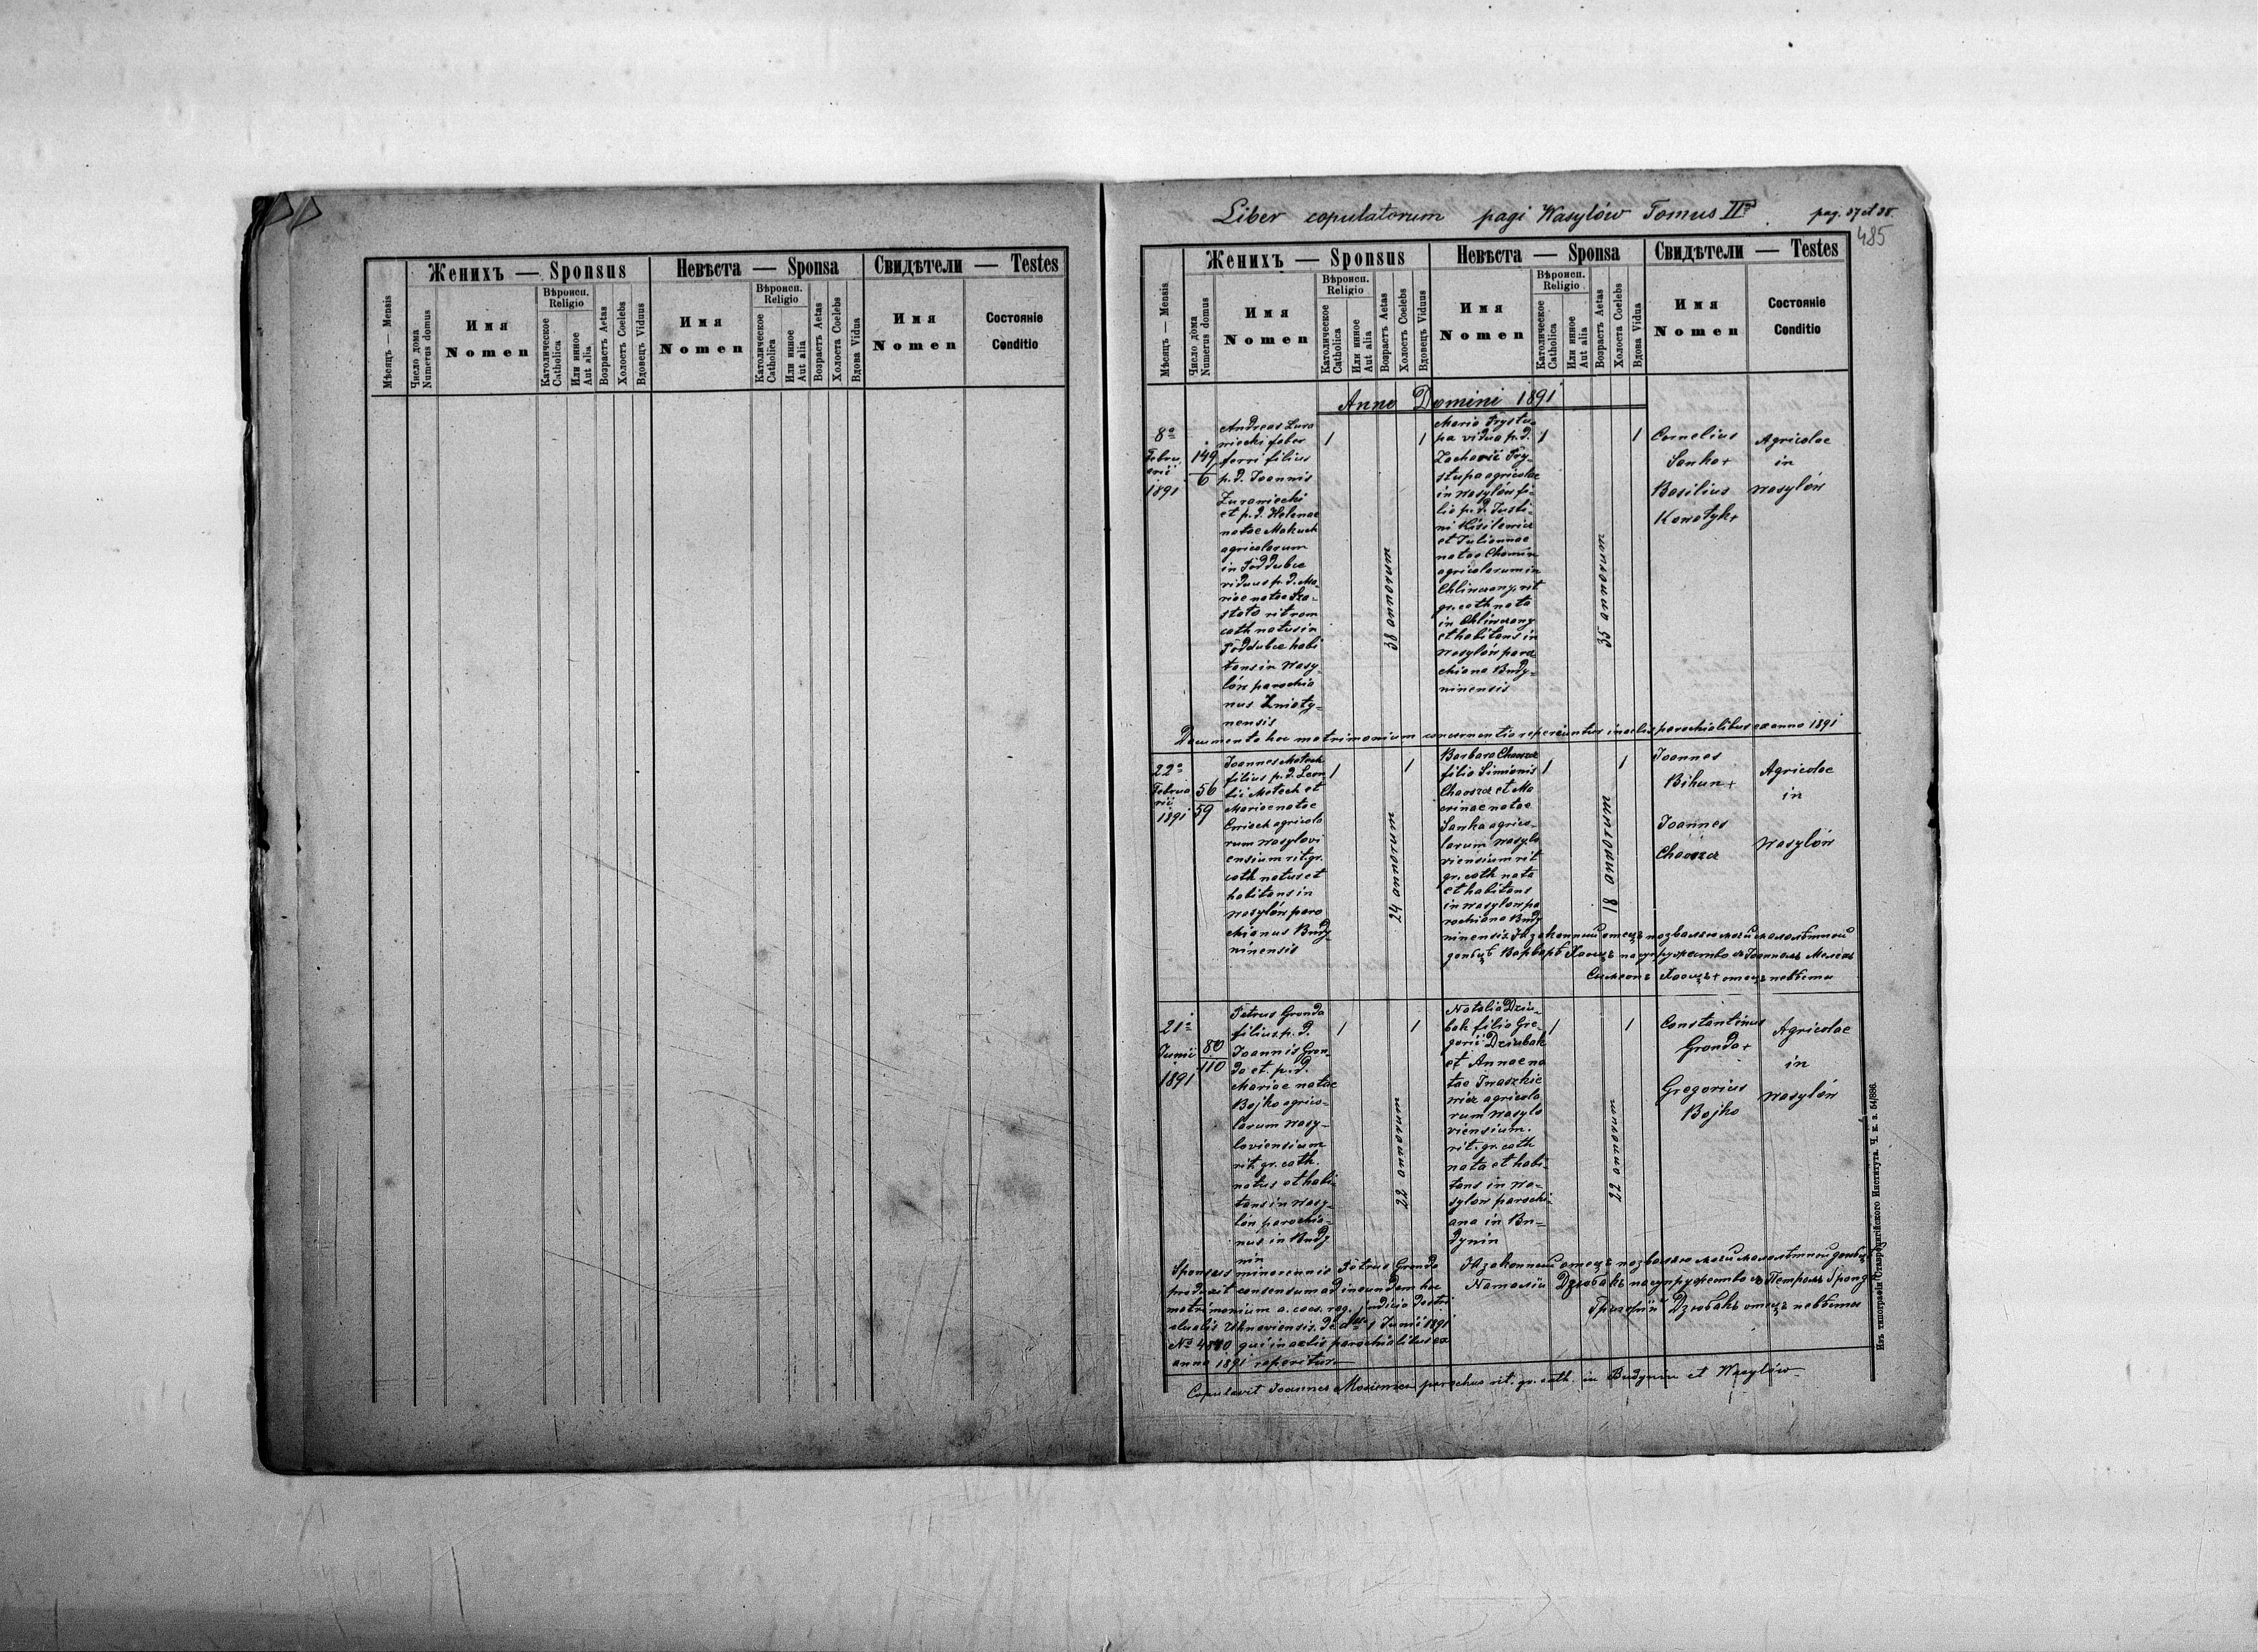 Женихъ — Sponsus
Невѣста — Sponsa
Свидѣтели — Testes
Мѣсяцъ — Mensis
Число дома
Numerus domus
Имя
Nomen
Вѣроисп.
Religio
Католическое
Catholica
Или инное
Aut alia
Возрастъ Aetas
Холостъ Coelebs
Вдовецъ Viduus
Имя
Nomen
Вѣроисп.
Religio
Католическое
Catholica
Или инное
Aut alia
Возрастъ Aetas
Холоста Coelebs
Вдова Vidua
Имя
Nomen
Состояніе
Conditio
Liber copulatorum pagi Wasylów Tomus II
pag. 37 et 38.
485
Женихъ — Sponsus
Невѣста — Sponsa
Свидѣтели — Testes
Мѣсяцъ — Mensis
Число дома
Numerus domus
Имя
Nomen
Вѣроисп.
Religio
Католическое
Catholica
Или инное
Aut alia
Возрастъ Aetas
Холостъ Coelebs
Вдовецъ Viduus
Имя
Nomen
Вѣроисп.
Religio
Католическое
Catholica
Или инное
Aut alia
Возрастъ Aetas
Холоста Coelebs
Вдова Vidua
Имя
Nomen
Состояніе
Conditio
Anno Domini 1891
8a
Febru
arii
1891
149
6
Andreas Żura
wiecki faber
ferri filius
p. d. Joannis
Żurawiecki
et p. d. Helenae
natae Makuch
agricolarum
in Poddubce
viduus p. d. Ma-
riae natae
rit rom
cath natus in
Poddubce habi
tans in Wasy-
lów parochia
nus Żniaty-
nensis
1
38 annorum
1
Maria Prystu
pa vidua p. d.
Zachariae Pry-
stupa agricolae
in Wasylów fi-
lia p. d. Justi-
ni Kisilewicz
et Juliannae
natae
agricolarum in
rit
gr. cath nata
in
et habitans in
Wasylów paro
chiana Budy-
ninensis
1
35 annorum
1
Cornelius
Sanka +
Basilius
+
Agricolae
in
Wasylów
Documenta hoc matrimonium concernentia reperiuntur in actis parochialibus ex anno 1891
22a
Februa
rii
1891
56
59
Joannes
filius p. d. Leon
tii et
Mariae natae
agricola
rum Wasylovi
ensium rit. gr.
cath natus et
habitans in
Wasylów paro
chianus Budy-
ninensis
1
24 annorum
1
Barbara
filia Simionis
et Ma
rinae natae
Sanka agrico-
larum Wasylo
viensium rit
gr. cath nata
et habitans
in Wasylów pa
rochiana Budy
ninensis
1
18 annorum
1
Joannes
Bihun +
Joannes
Agricolae
in
Wasylów
Я законный отецъ позваляю моей малолѣтной
Варварѣ на супружество съ Іоанномъ
Симеонъ + отецъ невѣсты
21a
Junii
1891
80
110
Petrus Gronda
filius p. d.
Joannis Gron-
da et p. d.
Mariae natae
Bojko agrico-
larum Wasy-
loviensium
rit. gr. cath.
natus et habi-
tans in Wasy-
lów parochia-
nus in Budy
nin
1
22 annorum
1
Natalia Dziu-
bak filia Gre-
gorii Dziubak
et Annae na
tae Iwaszkie
wicz agricola
rum Wasylo
viensium.
rit. gr. cath
nata et habi-
tans in Wa-
sylów parochi-
ana in Bu-
dynin
1
22 annorum
1
Constantinus
Gronda +
Gregorius
Bojko
Agricolae
in
Wasylów
Sponsus minorennis Petrus Gronda
produxit consensum ad ineundum hoc
matrimonium a. caes. reg. judicio
Uhnoviensis. De dto 1 Junii 1891
No qui in actis parochialibus ex
anno 1891 reperitur
Я законный отецъ позваляю моей малолѣтной
Наталіи Дзюбакъ на супружество съ Петромъ Гронда
Григорій Дзюбакъ отецъ невѣсты
Copulavit Joannes parochus rit. gr. cath. in Budynin et Wasylów
Изъ типографіи Ставропигійского Института. Ч. к. з. 54/886.